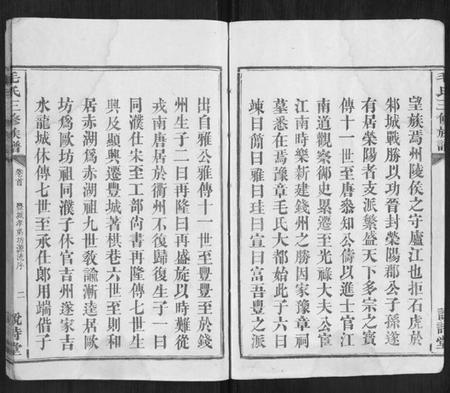 望族焉州陵侯之守廬江也拒石虎於
邾城戰勝以功晉封榮陽郡公子孫遂
有居榮陽者支派繁盛天下多宗之賓
傳十一世至唐𣁋知公儔以進士官江
南道觀察御史累遷至光祿大夫公宦
江南時樂新建錢州之勝因家豫章祠
墓悉在焉豫章毛氏大都始此子六曰
竦曰節曰雅曰珪曰宣曰富吾豐之派
毛氏三修族譜
詩堂
出自雅公雅傳十一世至豐豐至於錢
州生子二曰再隆曰再盛旋以時難從
戎南唐居於衢州不復歸復生子一曰
同濮仕宋至工部尚書再隆傳七世生
興及顯興遷豐城著棋巷六世至則和
居赤湖爲赤湖祖九世敎諭漸逵居歐
坊爲歐坊祖同濮子休官吉州遂家吉
水龍城休傳七世至承仕郎用端借子
毛氏三修族譜
卷首
豐城孝弟坊源流序
二
說詩堂